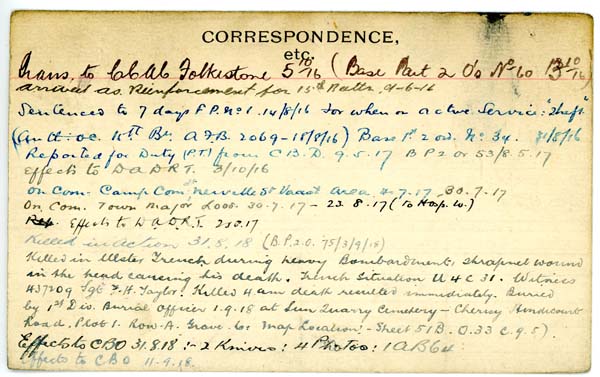 CORRESPONDENCE,
etc.
Trans. to C.C.A.C. Folkestone 5/10/16 (Base Part 2 O's No 60 13/10/16)
arrived as Reinforcement for 15th Battn. 9-6-16
Sentenced to 7 days F.P. No 1. 14/8/16 for when on active Service: "Theft"
(Auth: O.C. 15th Bn. A.F.B. 2069-18/8/16) Base Pt 2 ord. No. 34. 31/8/16
Reported for Duty (P.T.) from C.B.D. 9.5.17 B P 2 or 53/8.5.17
Effects to D.A.D.R.T. 3/10/16
On Com. Camp Com. Neuville St Vaast Area 4.7.17 30.7.17
On Com. Town Major Loos. 30.7.17 - 23.8.17 (To Hosp. W.)
Rep. Effects to D.A.D.R.T. 230.17
Killed in action 31.8.18 (B.P.2.O. 75/3/9/18)
Killed in Ulster Trench during heavy Bombardment, shrapnel wound
in the head causing his death. Trench Situation U 4 C 31. Witness
437209 Sgt F.H. Taylor. Killed 4 am death resulted immediately. Buried
by 1st Div. Burial Officer 1.9.18 at Sun Quarry Cemetery - Cherisy Hendicourt
Road, Plot 1. Row. A. Grave. 6. Map Location: - Sheet 51B. O.33 c.9.5).
Effects to CBO 31.8.18 :- 2 Knives: 4 Photos: 1 AB64.
Effects to C.B.O 11-9-18.